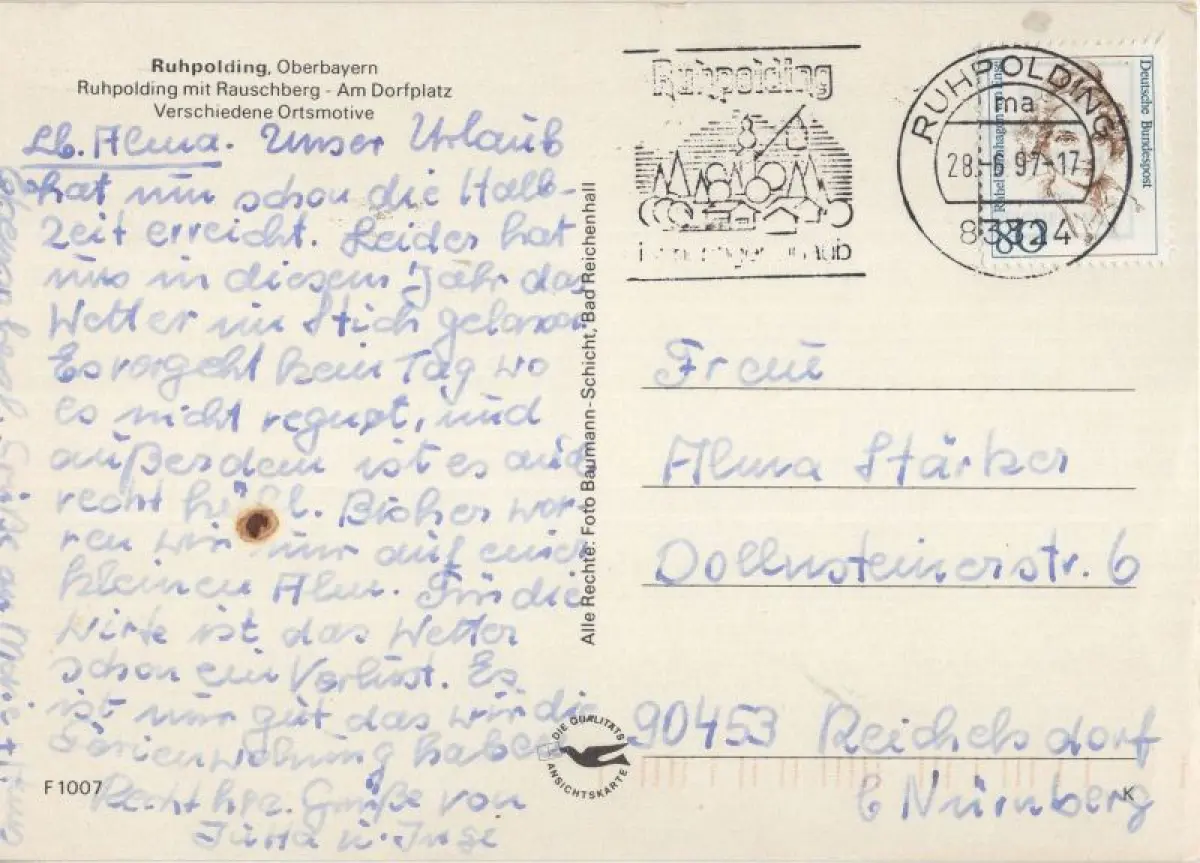 Ruhpolding, Oberbayern
Ruhpolding mit Rauschberg - Am Dorfplatz
Verschiedene Ortsmotive
Lb. Alma. Unser Urlaub
hat nun schon die Halb-
Zeit erreicht. Leider hat
uns in diesem Jahr das
Wetter im Stich gelassen
Es vergeht kein Tag wo
es nicht regnet, und
außerdem ist es auch
recht kühl. Bisher wa-
ren wir nur auf einer
kleinen Alm. Für die
Wirte ist das Wetter
schon ein Verlust. Es
ist nur gut das wir die
Ferienwohnung haben
Recht hrz. Grüße von
Jutta u. Inge
Grüße an
F1007
Alle Rechte: Foto Baumann-Schicht, Bad Reichenhall
DIE QUALITÄTS
ANSICHTSKARTE
Ruhpolding
RUHPOLDING
ma
28.-6.97-17
83324
Deutsche Bundespost
80
Frau
Alma Stärker
Dollnsteinerstr. 6
90453 Reichelsdorf
b Nürnberg
K